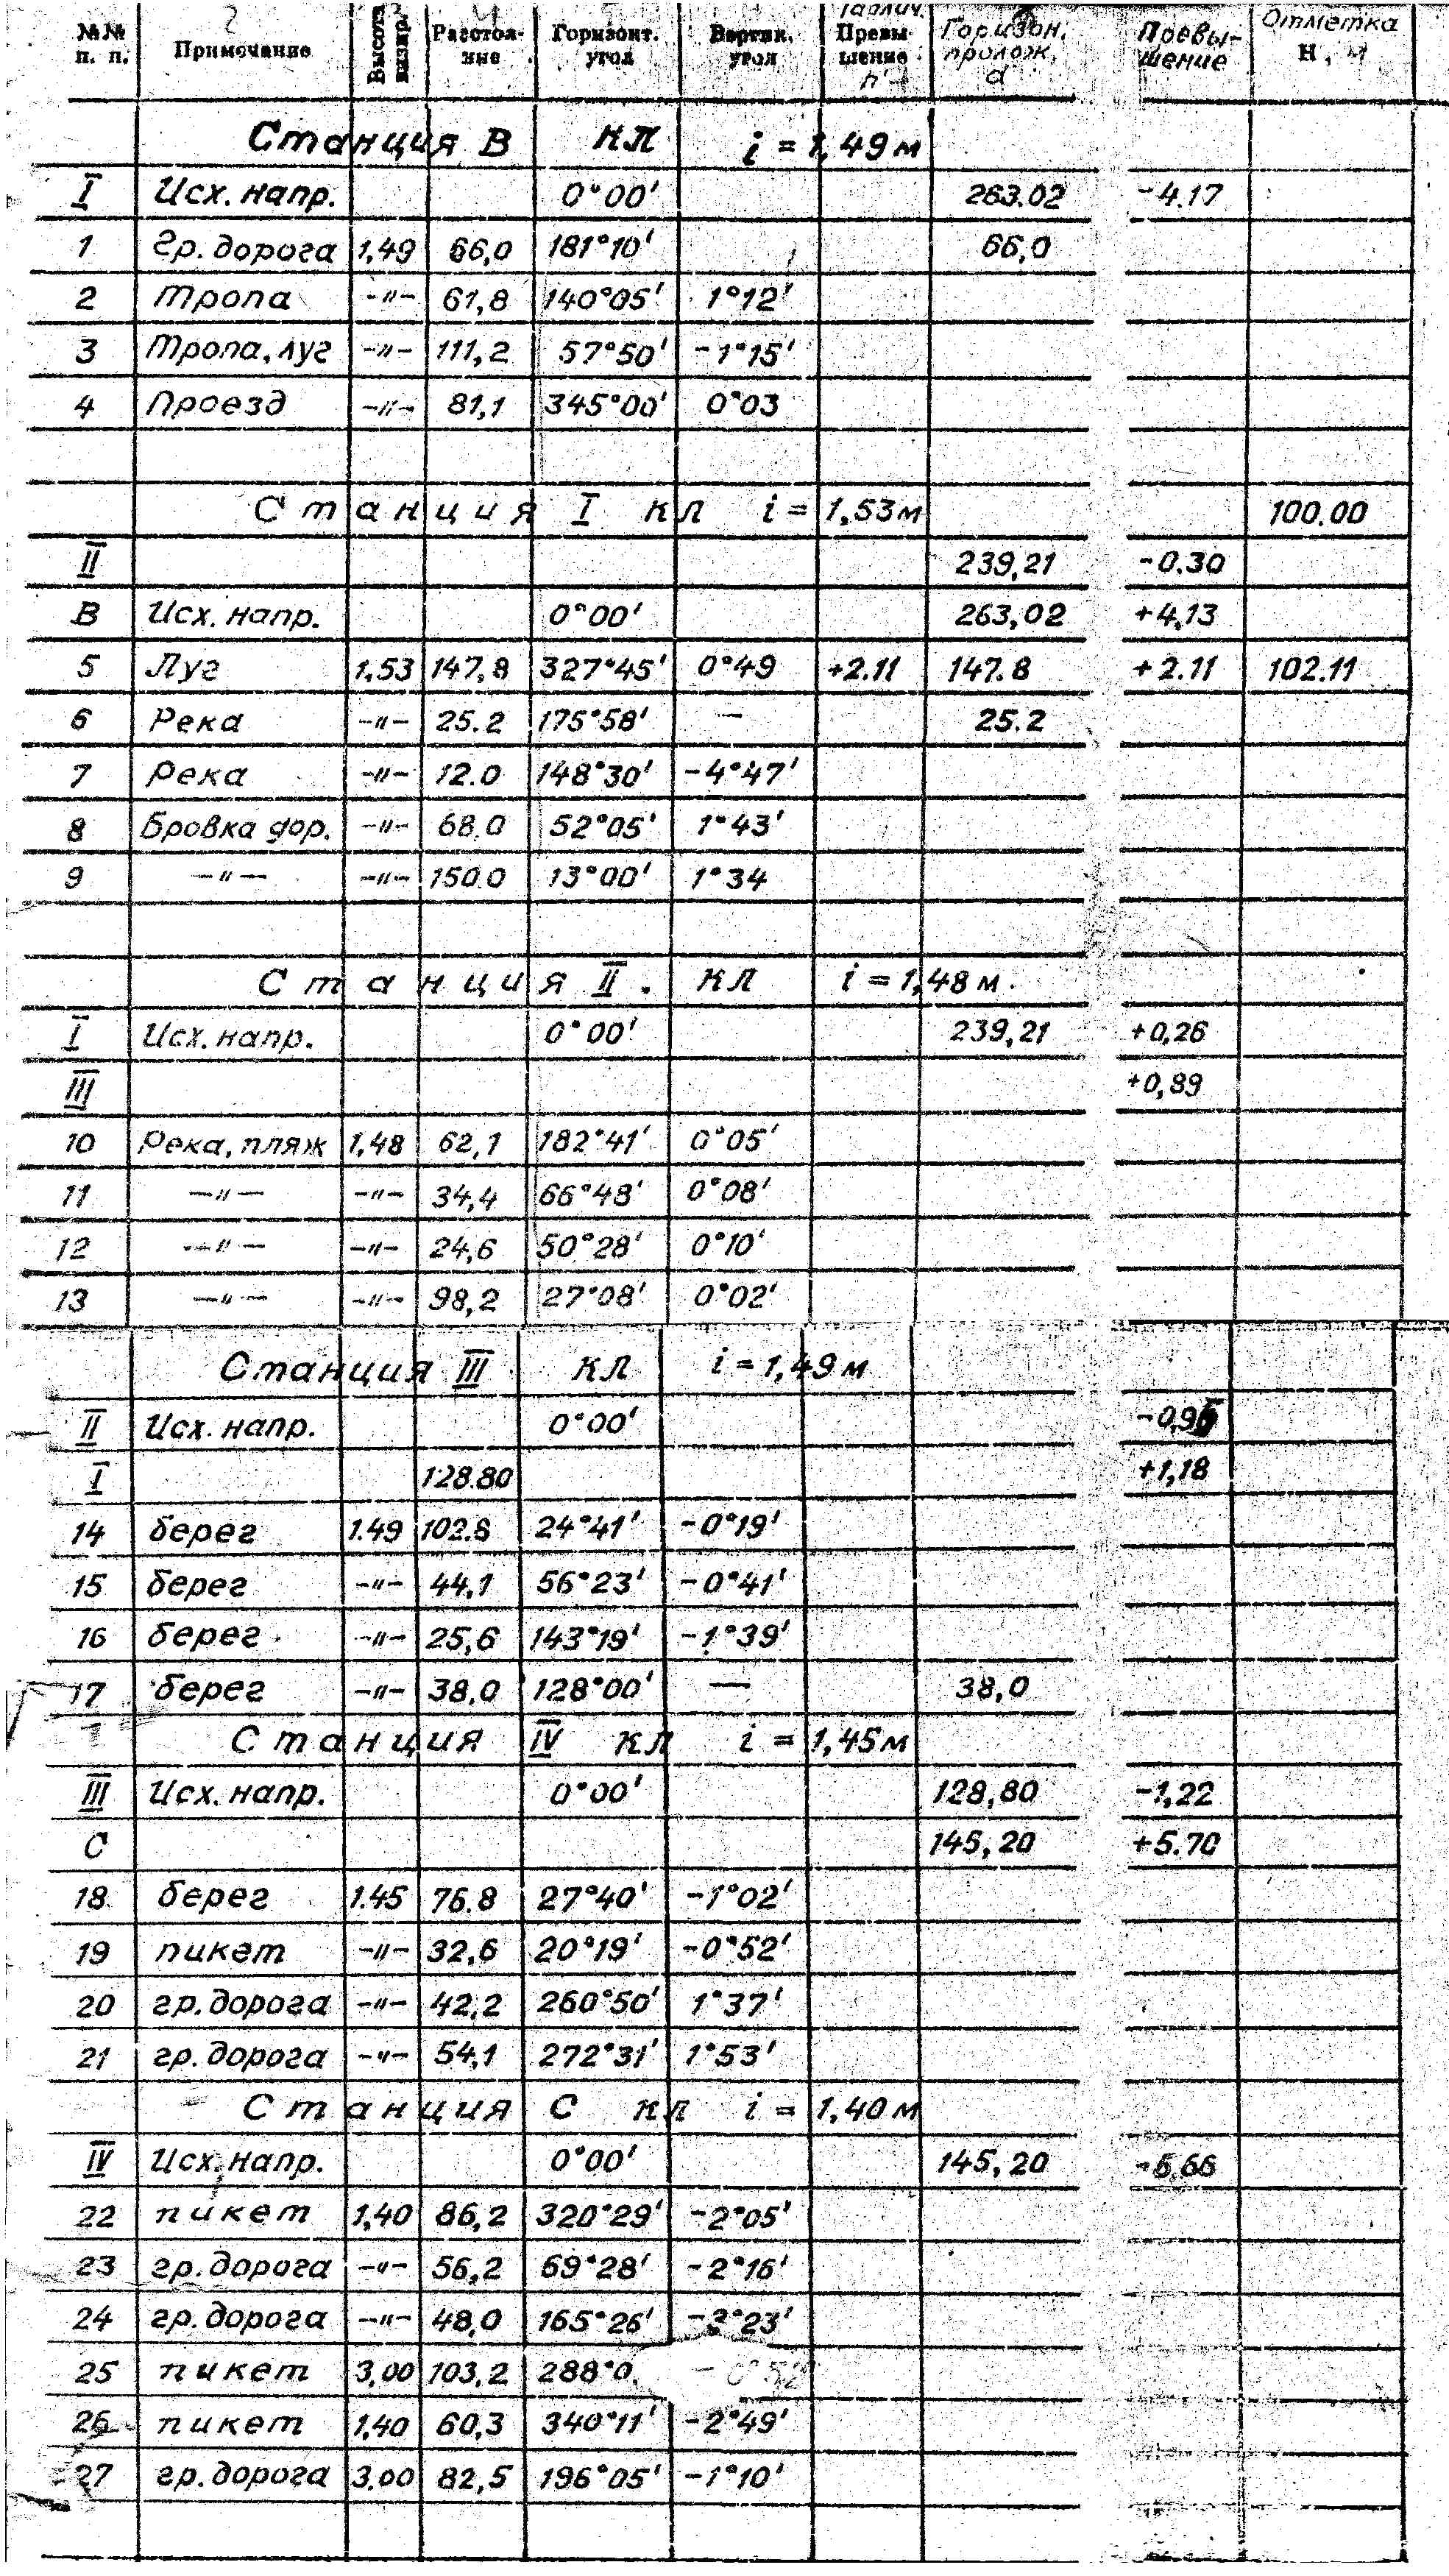 №№ п. п. Примечание Высота визир. Расстоя-ние Горизонт. угол Вертик. угол Таблич. Превы-шение h' Горизон. пролож. d Превы-шение Отметка Н, м
Станция В КЛ i = 1,49 м
I Исх. напр. 0°00' 263.02 -4.17
1 Гр. дорога 1,49 66,0 181°10' 66,0
2 Тропа -"- 61,8 140°05' 1°12'
3 Тропа, луг -"- 111,2 57°50' -1°15'
4 Проезд -"- 81,1 345°00' 0°03
Станция I КЛ i = 1,53 м 100.00
II 239,21 -0.30
В Исх. напр. 0°00' 263,02 +4,13
5 Луг 1,53 147,8 327°45' 0°49 +2.11 147.8 +2.11 102.11
6 Река -"- 25.2 175°58' — 25.2
7 Река -"- 12.0 148°30' -4°47'
8 Бровка дор. -"- 68.0 52°05' 1°43'
9 -"- -"- 150.0 13°00' 1°34
Станция II. КЛ i = 1,48 м.
I Исх. напр. 0°00' 239,21 +0,26
III +0,89
10 Река, пляж 1,48 62,1 182°41' 0°05'
11 -"- -"- 34,4 66°48' 0°08'
12 -"- -"- 24,6 50°28' 0°10'
13 -"- -"- 98,2 27°08' 0°02'
Станция III КЛ i = 1,49 м
II Исх. напр. 0°00'
I 128.80 +1,18
14 берег 1.49 102.8 24°41' -0°19'
15 берег -"- 44,1 56°23' -0°41'
16 берег -"- 25,6 143°19' -1°39'
17 берег -"- 38,0 128°00' — 38,0
Станция IV КЛ i = 1,45 м
III Исх. напр. 0°00' 128,80 -1,22
С 145,20 +5.70
18 берег 1.45 76.8 27°40' -1°02'
19 пикет -"- 32,6 20°19' -0°52'
20 гр. дорога -"- 42,2 260°50' 1°37'
21 гр. дорога -"- 54,1 272°31' 1°53'
Станция С КЛ i = 1,40 м
IV Исх. напр. 0°00' 145,20
22 пикет 1,40 86,2 320°29' -2°05'
23 гр. дорога -"- 56,2 69°28' -2°16'
24 гр. дорога -"- 48,0 165°26'
25 пикет 3,00 103,2
26 пикет 1,40 60,3 340°11' -2°49'
27 гр. дорога 3.00 82,5 196°05' -1°10'